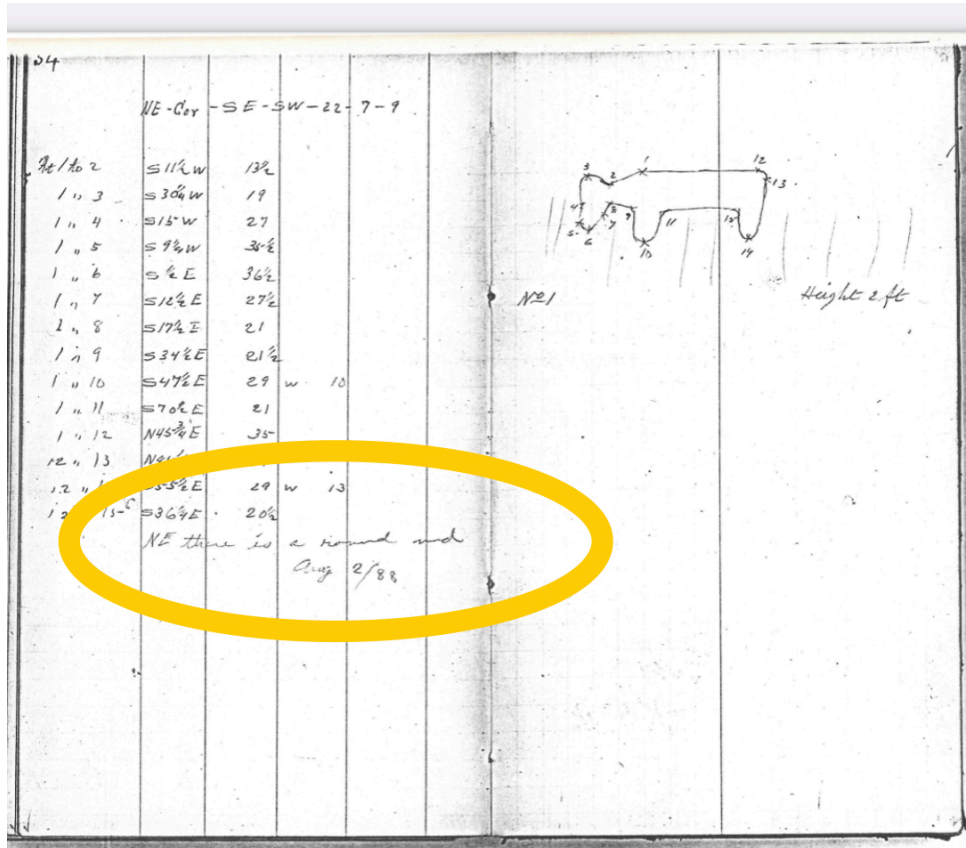 34
NE-Cor-SE-SW-22-7-9
Ft 1 to 2 S11½W 13½
1 " 3 S30¼W 19
1 " 4 S15W 27
1 " 5 S9¾W 35½
1 " 6 S½E 36½
1 " 7 S12½E 27½
1 " 8 S17½E 21
1 " 9 S34½E 21½
1 " 10 S47½E 29 W 10
1 " 11 S70½E 21
1 " 12 N45¾E 35
12 " 13
12 " S55½E 29 W 13
12 15 S36¼E 20½
NE there is a round md
Aug 2/88
3 1 12
2 13
4 8 9 11 15
5 7
6 10 14
No 1 Height 2 ft